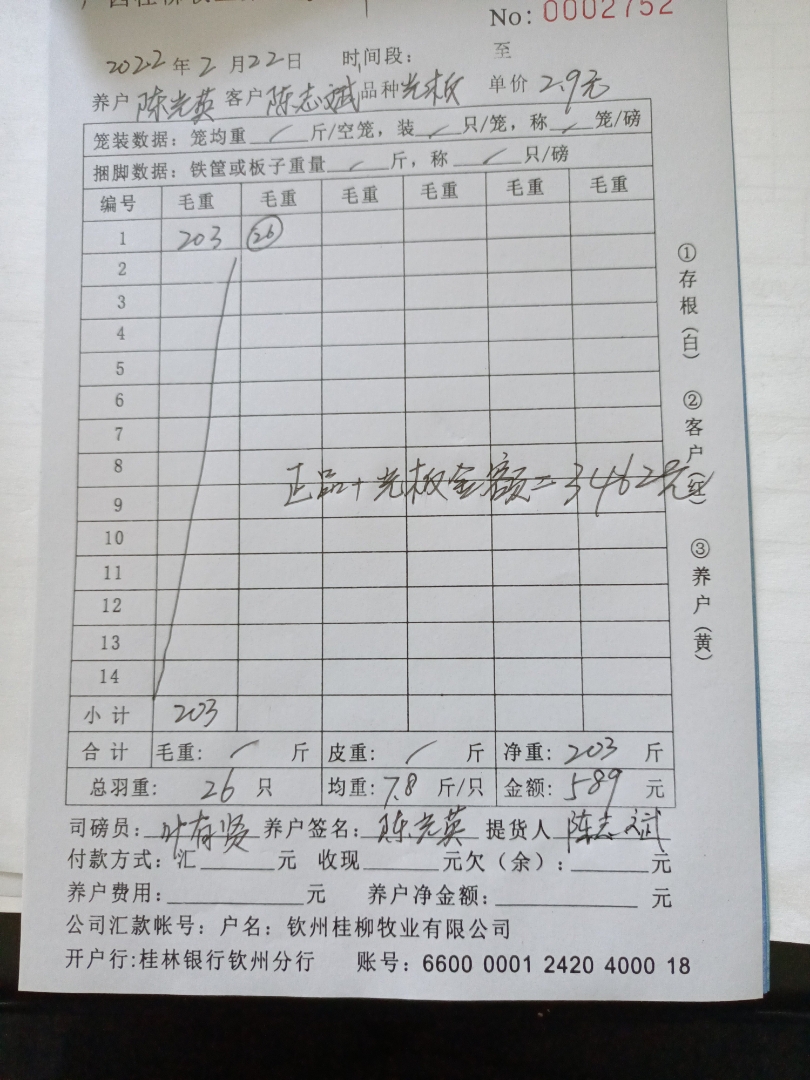 No: 0002752
2022年2月22日 时间段: 至
养户 陈光英 客户 陈志斌 品种 光板 单价 2.9元
笼装数据: 笼均重 / 斤/空笼, 装 / 只/笼, 称 / 笼/磅
捆脚数据: 铁筐或板子重量 / 斤, 称 / 只/磅
编号 毛重 毛重 毛重 毛重 毛重 毛重
1 203 26
2
3
4
5
6
7
8
正品+光板金额=34628元
9
10
11
12
13
14
小计 203
合计 毛重: / 斤 皮重: / 斤 净重: 203 斤
总羽重: 26 只 均重: 7.8 斤/只 金额: 589 元
司磅员: 叶有贤 养户签名: 陈光英 提货人 陈志斌
付款方式: 汇 元 收现 元欠(余): 元
养户费用: 元 养户净金额: 元
公司汇款帐号: 户名: 钦州桂柳牧业有限公司
开户行:桂林银行钦州分行 账号: 6600 0001 2420 4000 18
①存根(白) ②客户(红) ③养户(黄)